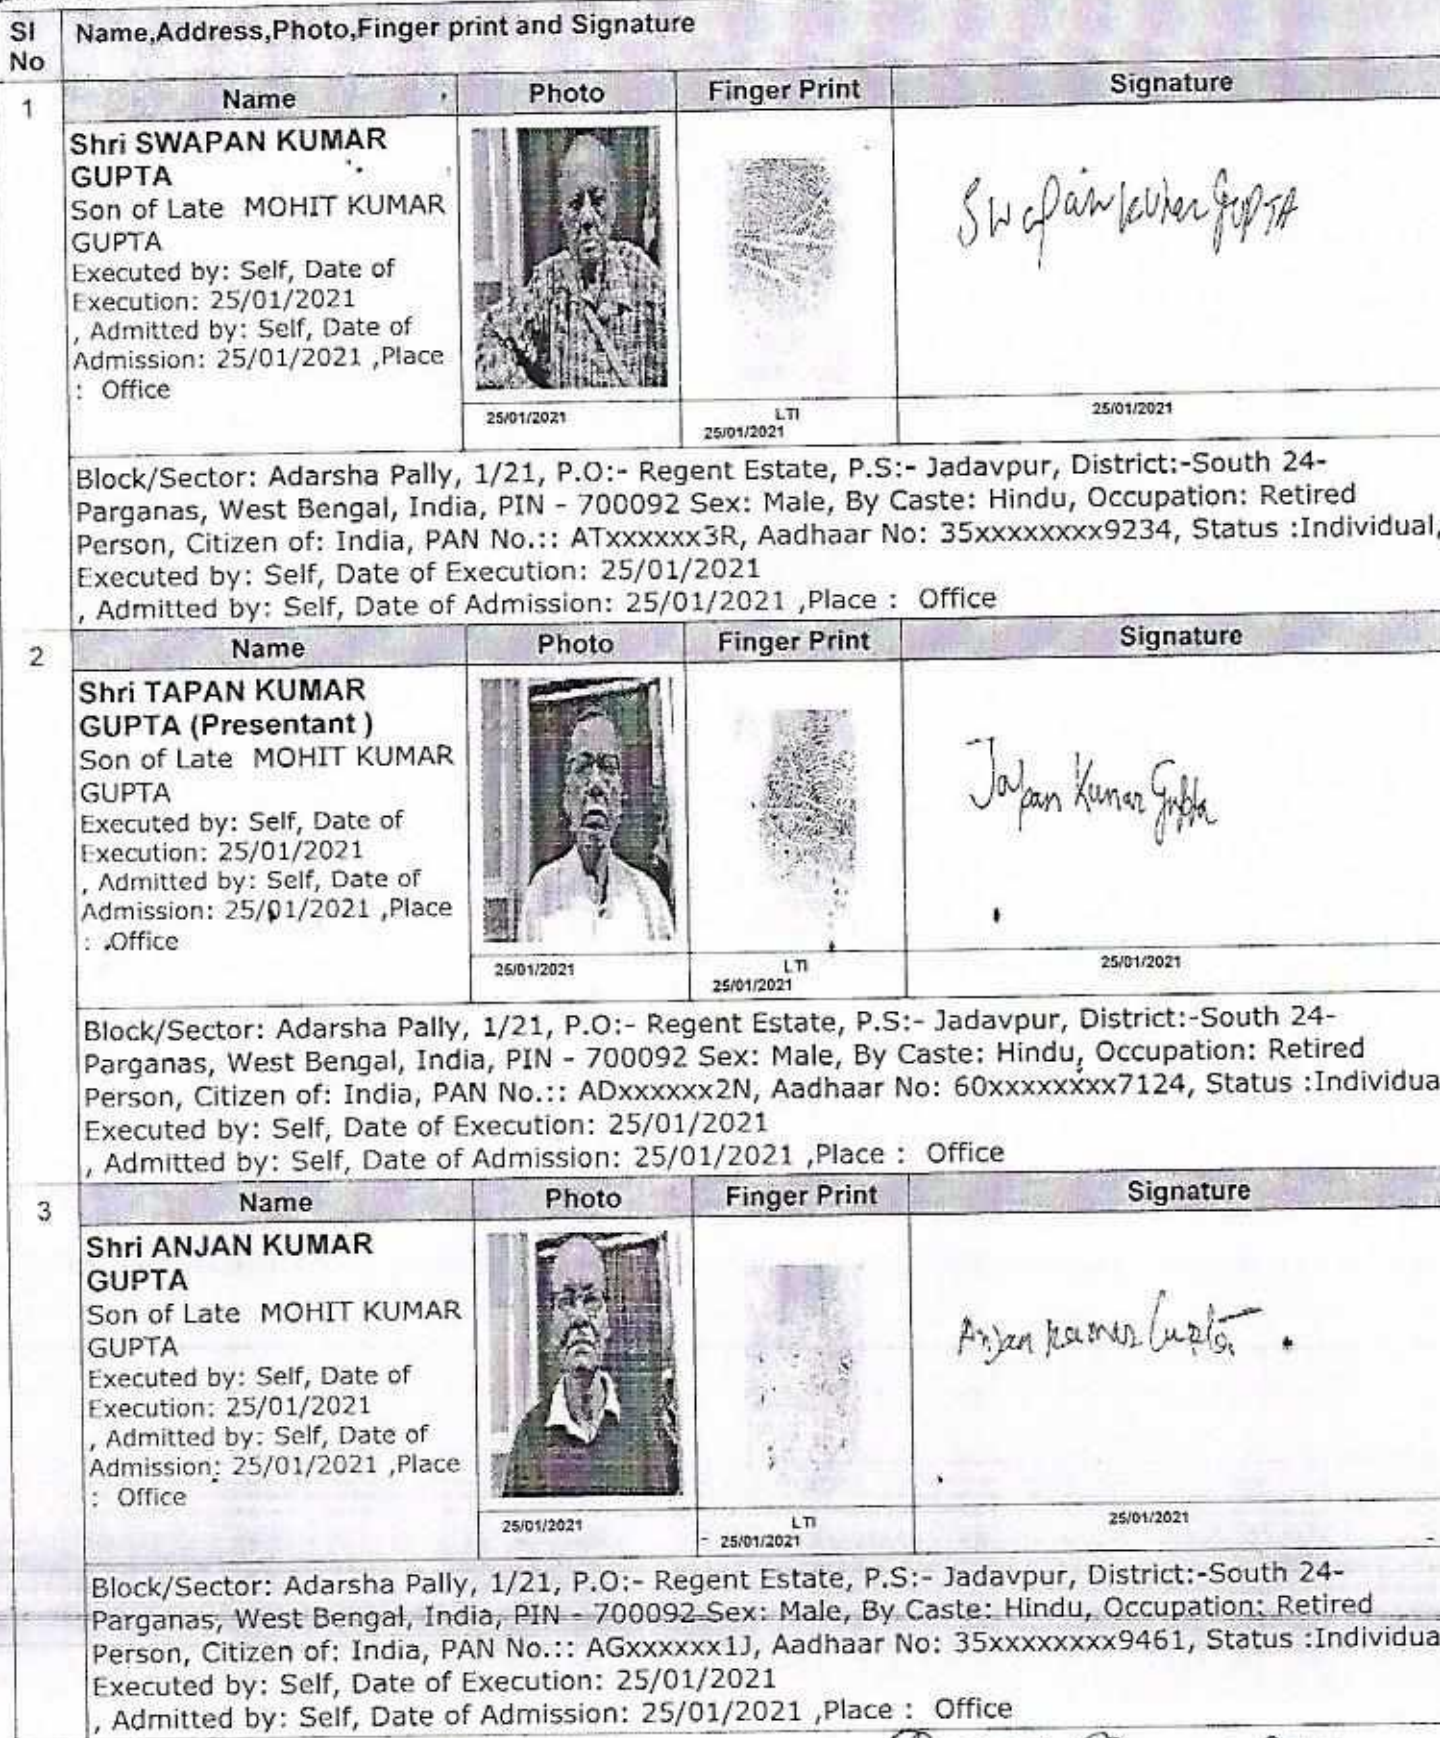 Sl No
Name,Address,Photo,Finger print and Signature
1
Name Photo Finger Print Signature
Shri SWAPAN KUMAR
GUPTA
Son of Late MOHIT KUMAR
GUPTA
Executed by: Self, Date of
Execution: 25/01/2021
, Admitted by: Self, Date of
Admission: 25/01/2021 ,Place
: Office
Swapan kumar GUPTA
25/01/2021
LTI
25/01/2021
25/01/2021
Block/Sector: Adarsha Pally, 1/21, P.O:- Regent Estate, P.S:- Jadavpur, District:-South 24-
Parganas, West Bengal, India, PIN - 700092 Sex: Male, By Caste: Hindu, Occupation: Retired
Person, Citizen of: India, PAN No.:: ATxxxxxx3R, Aadhaar No: 35xxxxxxxx9234, Status :Individual,
Executed by: Self, Date of Execution: 25/01/2021
, Admitted by: Self, Date of Admission: 25/01/2021 ,Place : Office
2
Name Photo Finger Print Signature
Shri TAPAN KUMAR
GUPTA (Presentant )
Son of Late MOHIT KUMAR
GUPTA
Executed by: Self, Date of
Execution: 25/01/2021
, Admitted by: Self, Date of
Admission: 25/01/2021 ,Place
: Office
Tapan Kumar Gupta
25/01/2021
LTI
25/01/2021
25/01/2021
Block/Sector: Adarsha Pally, 1/21, P.O:- Regent Estate, P.S:- Jadavpur, District:-South 24-
Parganas, West Bengal, India, PIN - 700092 Sex: Male, By Caste: Hindu, Occupation: Retired
Person, Citizen of: India, PAN No.:: ADxxxxxx2N, Aadhaar No: 60xxxxxxxx7124, Status :Individua
Executed by: Self, Date of Execution: 25/01/2021
, Admitted by: Self, Date of Admission: 25/01/2021 ,Place : Office
3
Name Photo Finger Print Signature
Shri ANJAN KUMAR
GUPTA
Son of Late MOHIT KUMAR
GUPTA
Executed by: Self, Date of
Execution: 25/01/2021
, Admitted by: Self, Date of
Admission: 25/01/2021 ,Place
: Office
Anjan Kumar Gupta
25/01/2021
LTI
25/01/2021
25/01/2021
Block/Sector: Adarsha Pally, 1/21, P.O:- Regent Estate, P.S:- Jadavpur, District:-South 24-
Parganas, West Bengal, India, PIN - 700092 Sex: Male, By Caste: Hindu, Occupation: Retired
Person, Citizen of: India, PAN No.:: AGxxxxxx1J, Aadhaar No: 35xxxxxxxx9461, Status :Individua
Executed by: Self, Date of Execution: 25/01/2021
, Admitted by: Self, Date of Admission: 25/01/2021 ,Place : Office